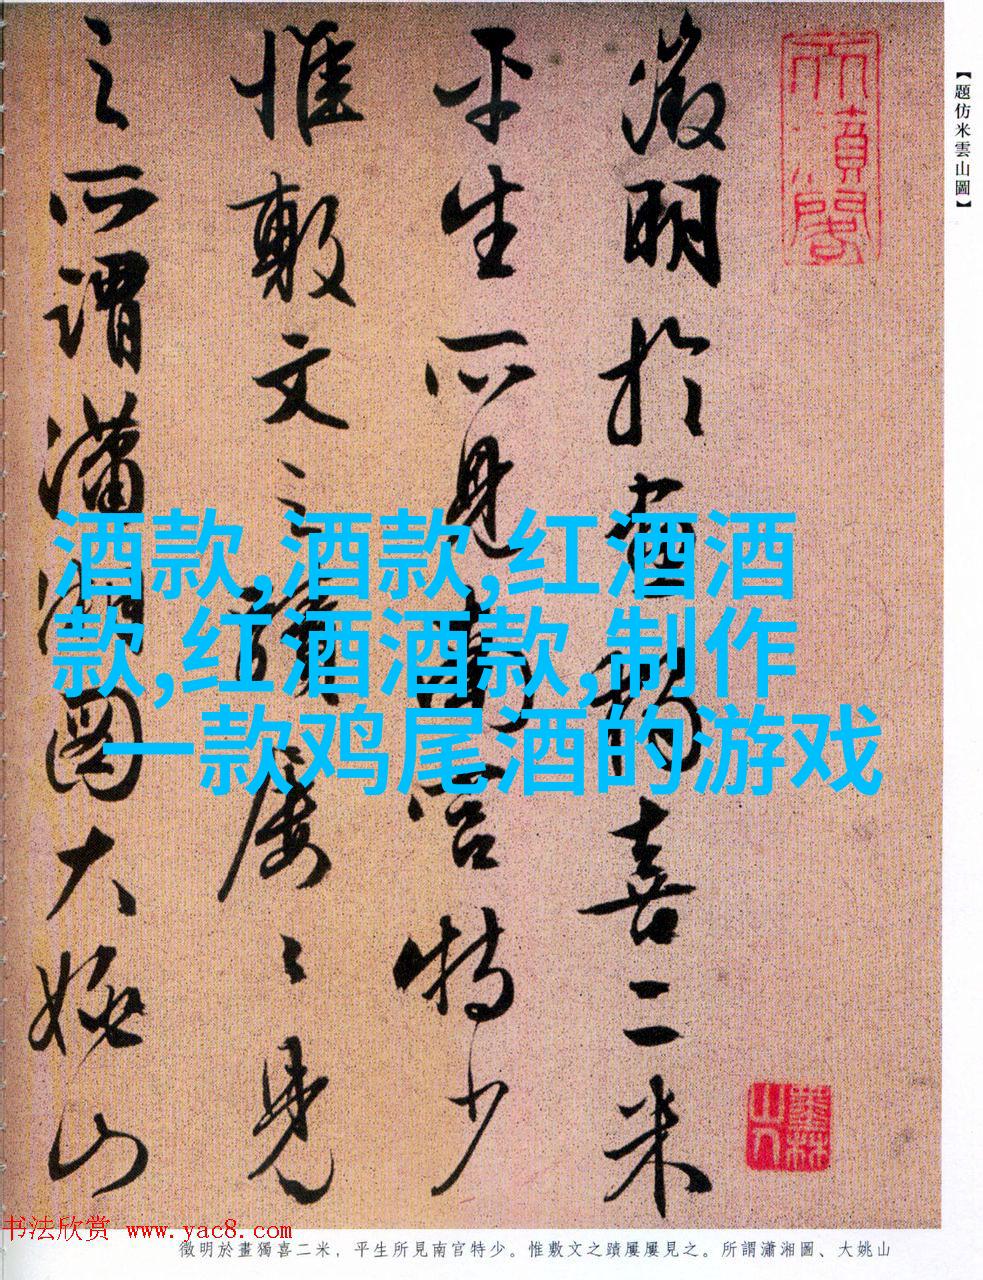 【題仿米雲山圖】
徵明於畫獨喜二米
平生所見南宮特少
惟敷文之蹟屢屢見
之所謂瀟湘圖大姚山
墨林山人
酒款,酒款,红酒酒
款,红酒酒款,制作
一款鸡尾酒的游戏
书法欣赏 www.yac8.com
徵明於畫獨喜二米，平生所見南宮特少。惟敷文之蹟屢屢見之。所謂瀟湘圖、大姚山